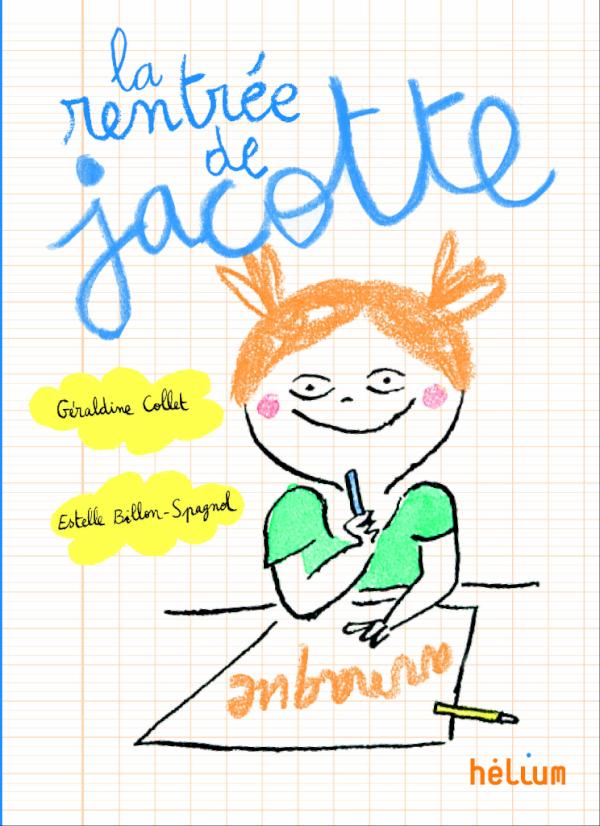 la
rentrée
de
jacotte
Géraldine Collet
Estelle Billon-Spagnol
hélium